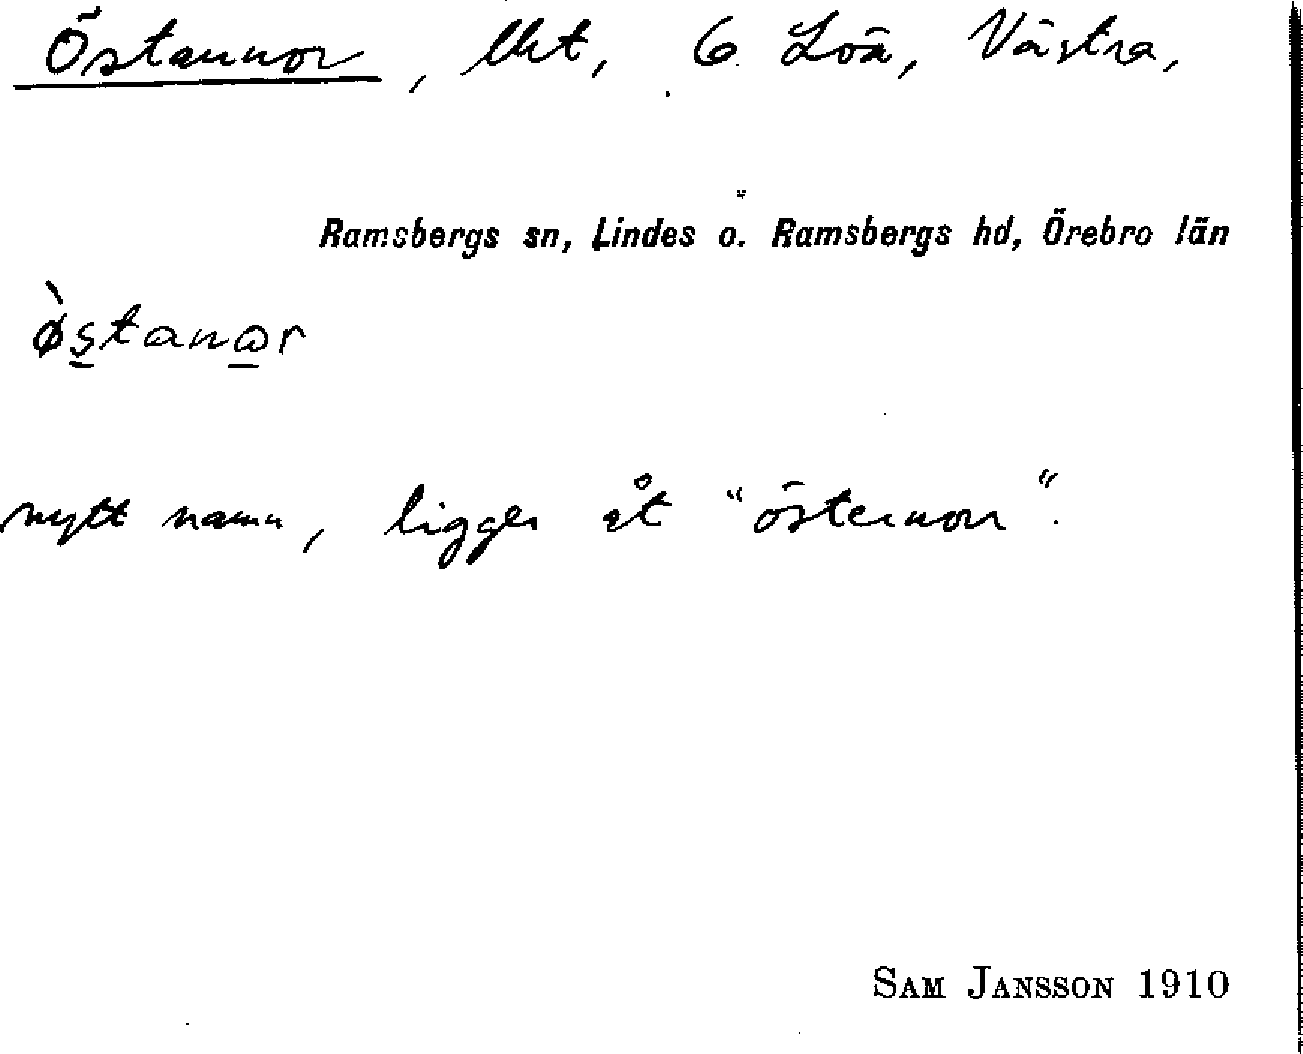 Östannor, lht, 6. Loä, Västra,
Ramsbergs sn, Lindes o. Ramsbergs hd, Örebro län
ø̀s̠tanꙍ̠r
nytt namn, ligger åt "östernorr".
SAM JANSSON 1910